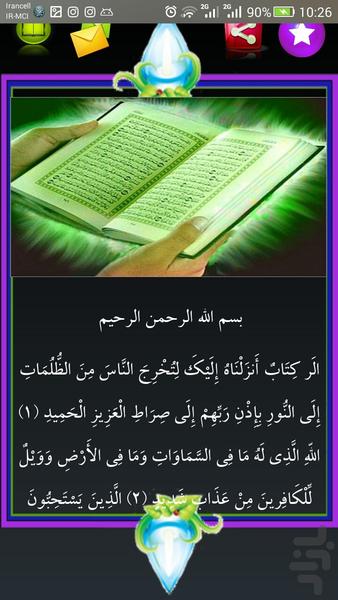 Irancell
IR-MCI
2G 2G 90% 10:26
بسم الله الرحمن الرحيم
الَر كِتَابٌ أَنزَلْنَاهُ إِلَيْكَ لِتُخْرِجَ النَّاسَ مِنَ الظُّلُمَاتِ
إِلَى النُّورِ بِإِذْنِ رَبِّهِمْ إِلَى صِرَاطِ الْعَزِيزِ الْحَمِيدِ (۱)
اللّهِ الَّذِی لَهُ مَا فِی السَّمَاوَاتِ وَمَا فِی الأَرْضِ وَوَيْلٌ
لِّلْكَافِرِينَ مِنْ عَذَابٍ شَدِيدٍ (۲) الَّذِينَ يَسْتَحِبُّونَ
بازار